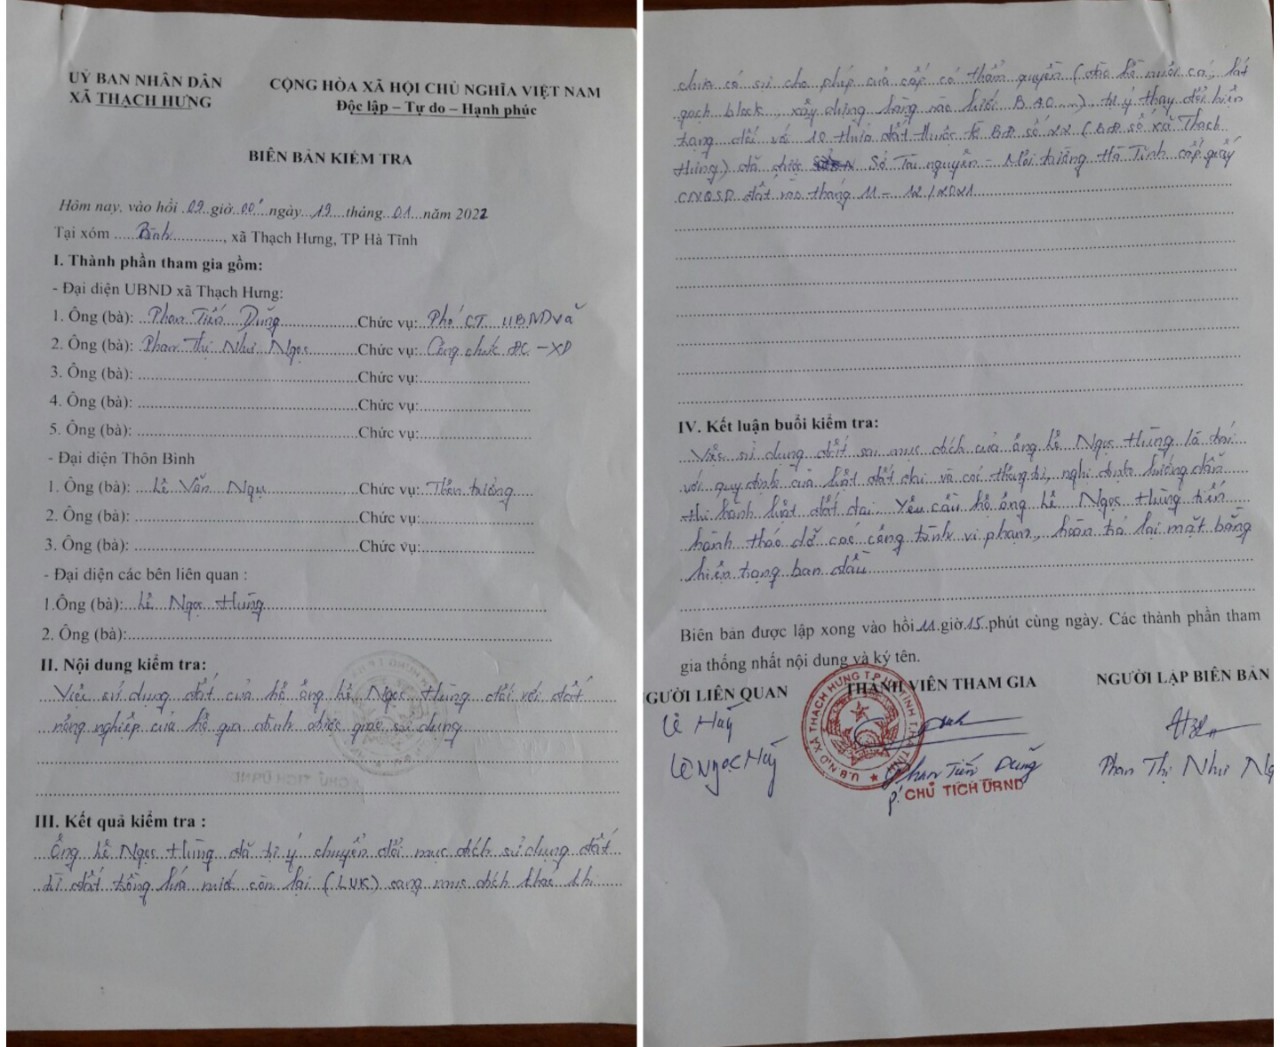 UỶ BAN NHÂN DÂN
XÃ THẠCH HƯNG
CỘNG HÒA XÃ HỘI CHỦ NGHĨA VIỆT NAM
Độc lập – Tự do – Hạnh phúc
BIÊN BẢN KIỂM TRA
Hôm nay, vào hồi 09 giờ 00' ngày 19 tháng 01 năm 2022
Tại xóm Bình, xã Thạch Hưng, TP Hà Tĩnh
I. Thành phần tham gia gồm:
- Đại diện UBND xã Thạch Hưng:
1. Ông (bà): Phan Tiến Dũng Chức vụ: Phó CT UBND xã
2. Ông (bà): Phan Thị Như Ngọc Chức vụ: Công chức ĐC - XD
3. Ông (bà): Chức vụ:
4. Ông (bà): Chức vụ:
5. Ông (bà): Chức vụ:
- Đại diện Thôn Bình
1. Ông (bà): Lê Văn Chức vụ: Thôn trưởng
2. Ông (bà): Chức vụ:
3. Ông (bà): Chức vụ:
- Đại diện các bên liên quan :
1.Ông (bà): Lê Ngọc Hùng
2. Ông (bà):
II. Nội dung kiểm tra:
Việc sử dụng đất của hộ ông Lê Ngọc Hùng đối với đất
nông nghiệp của hộ gia đình được giao sử dụng
III. Kết quả kiểm tra :
Ông Lê Ngọc Hùng đã tự ý chuyển đổi mục đích sử dụng đất
từ đất trồng lúa nước còn lại (LUK) sang mục đích khác khi
chưa có sự cho phép của cấp có thẩm quyền (đào hồ nuôi cá, lát
gạch block, xây dựng hàng rào lưới B40...) tự ý thay đổi hiện
trạng đối với 10 thửa đất thuộc tờ BĐ số (BĐ số xã Thạch
Hưng) đã được Sở Tài nguyên - Môi trường Hà Tĩnh cấp giấy
CNQSD đất vào tháng 11 - 12/2021
IV. Kết luận buổi kiểm tra:
Việc sử dụng đất sai mục đích của ông Lê Ngọc Hùng là trái
với quy định của luật đất đai và các thông tư, nghị định hướng dẫn
thi hành luật đất đai. Yêu cầu hộ ông Lê Ngọc Hùng tiến
hành tháo dỡ các công trình vi phạm, hoàn trả lại mặt bằng
hiện trạng ban đầu
Biên bản được lập xong vào hồi 11 giờ 15 phút cùng ngày. Các thành phần tham
gia thống nhất nội dung và ký tên.
NGƯỜI LIÊN QUAN THÀNH VIÊN THAM GIA NGƯỜI LẬP BIÊN BẢN
U.B.N.D XÃ THẠCH HƯNG T.P HÀ TĨNH T. HÀ TĨNH
Phan Tiến Dũng
P. CHỦ TỊCH UBND
Phan Thị Như